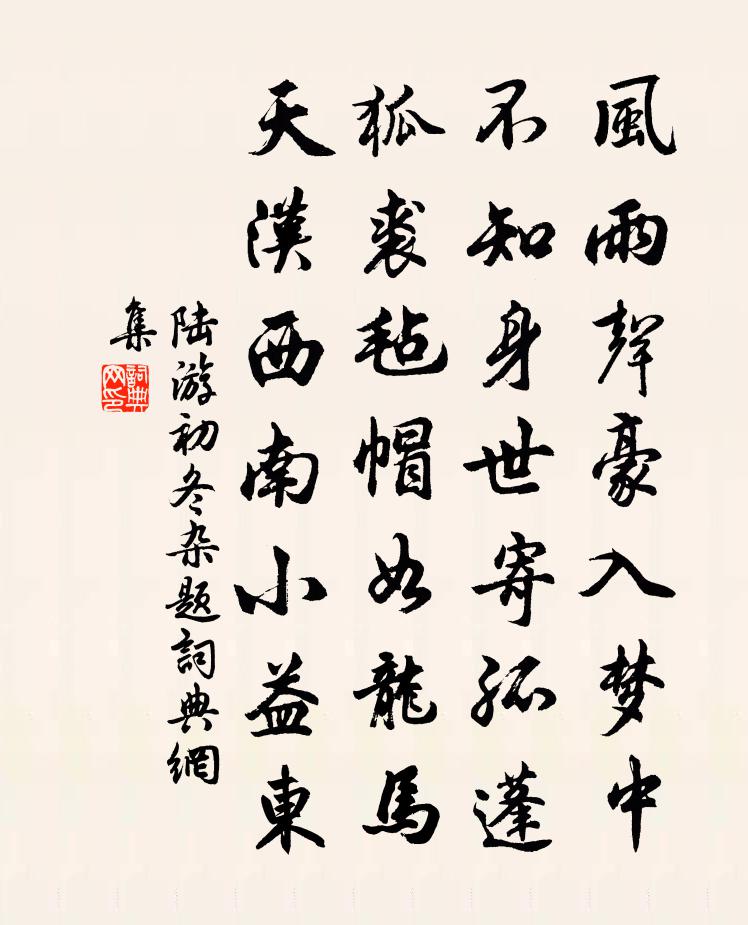 風雨聲豪入梦中
不知身世寄孤蓬
狐裘毡帽如龍馬
天漢西南小益東
陆游初冬杂题詞典網
集
詞典
网印